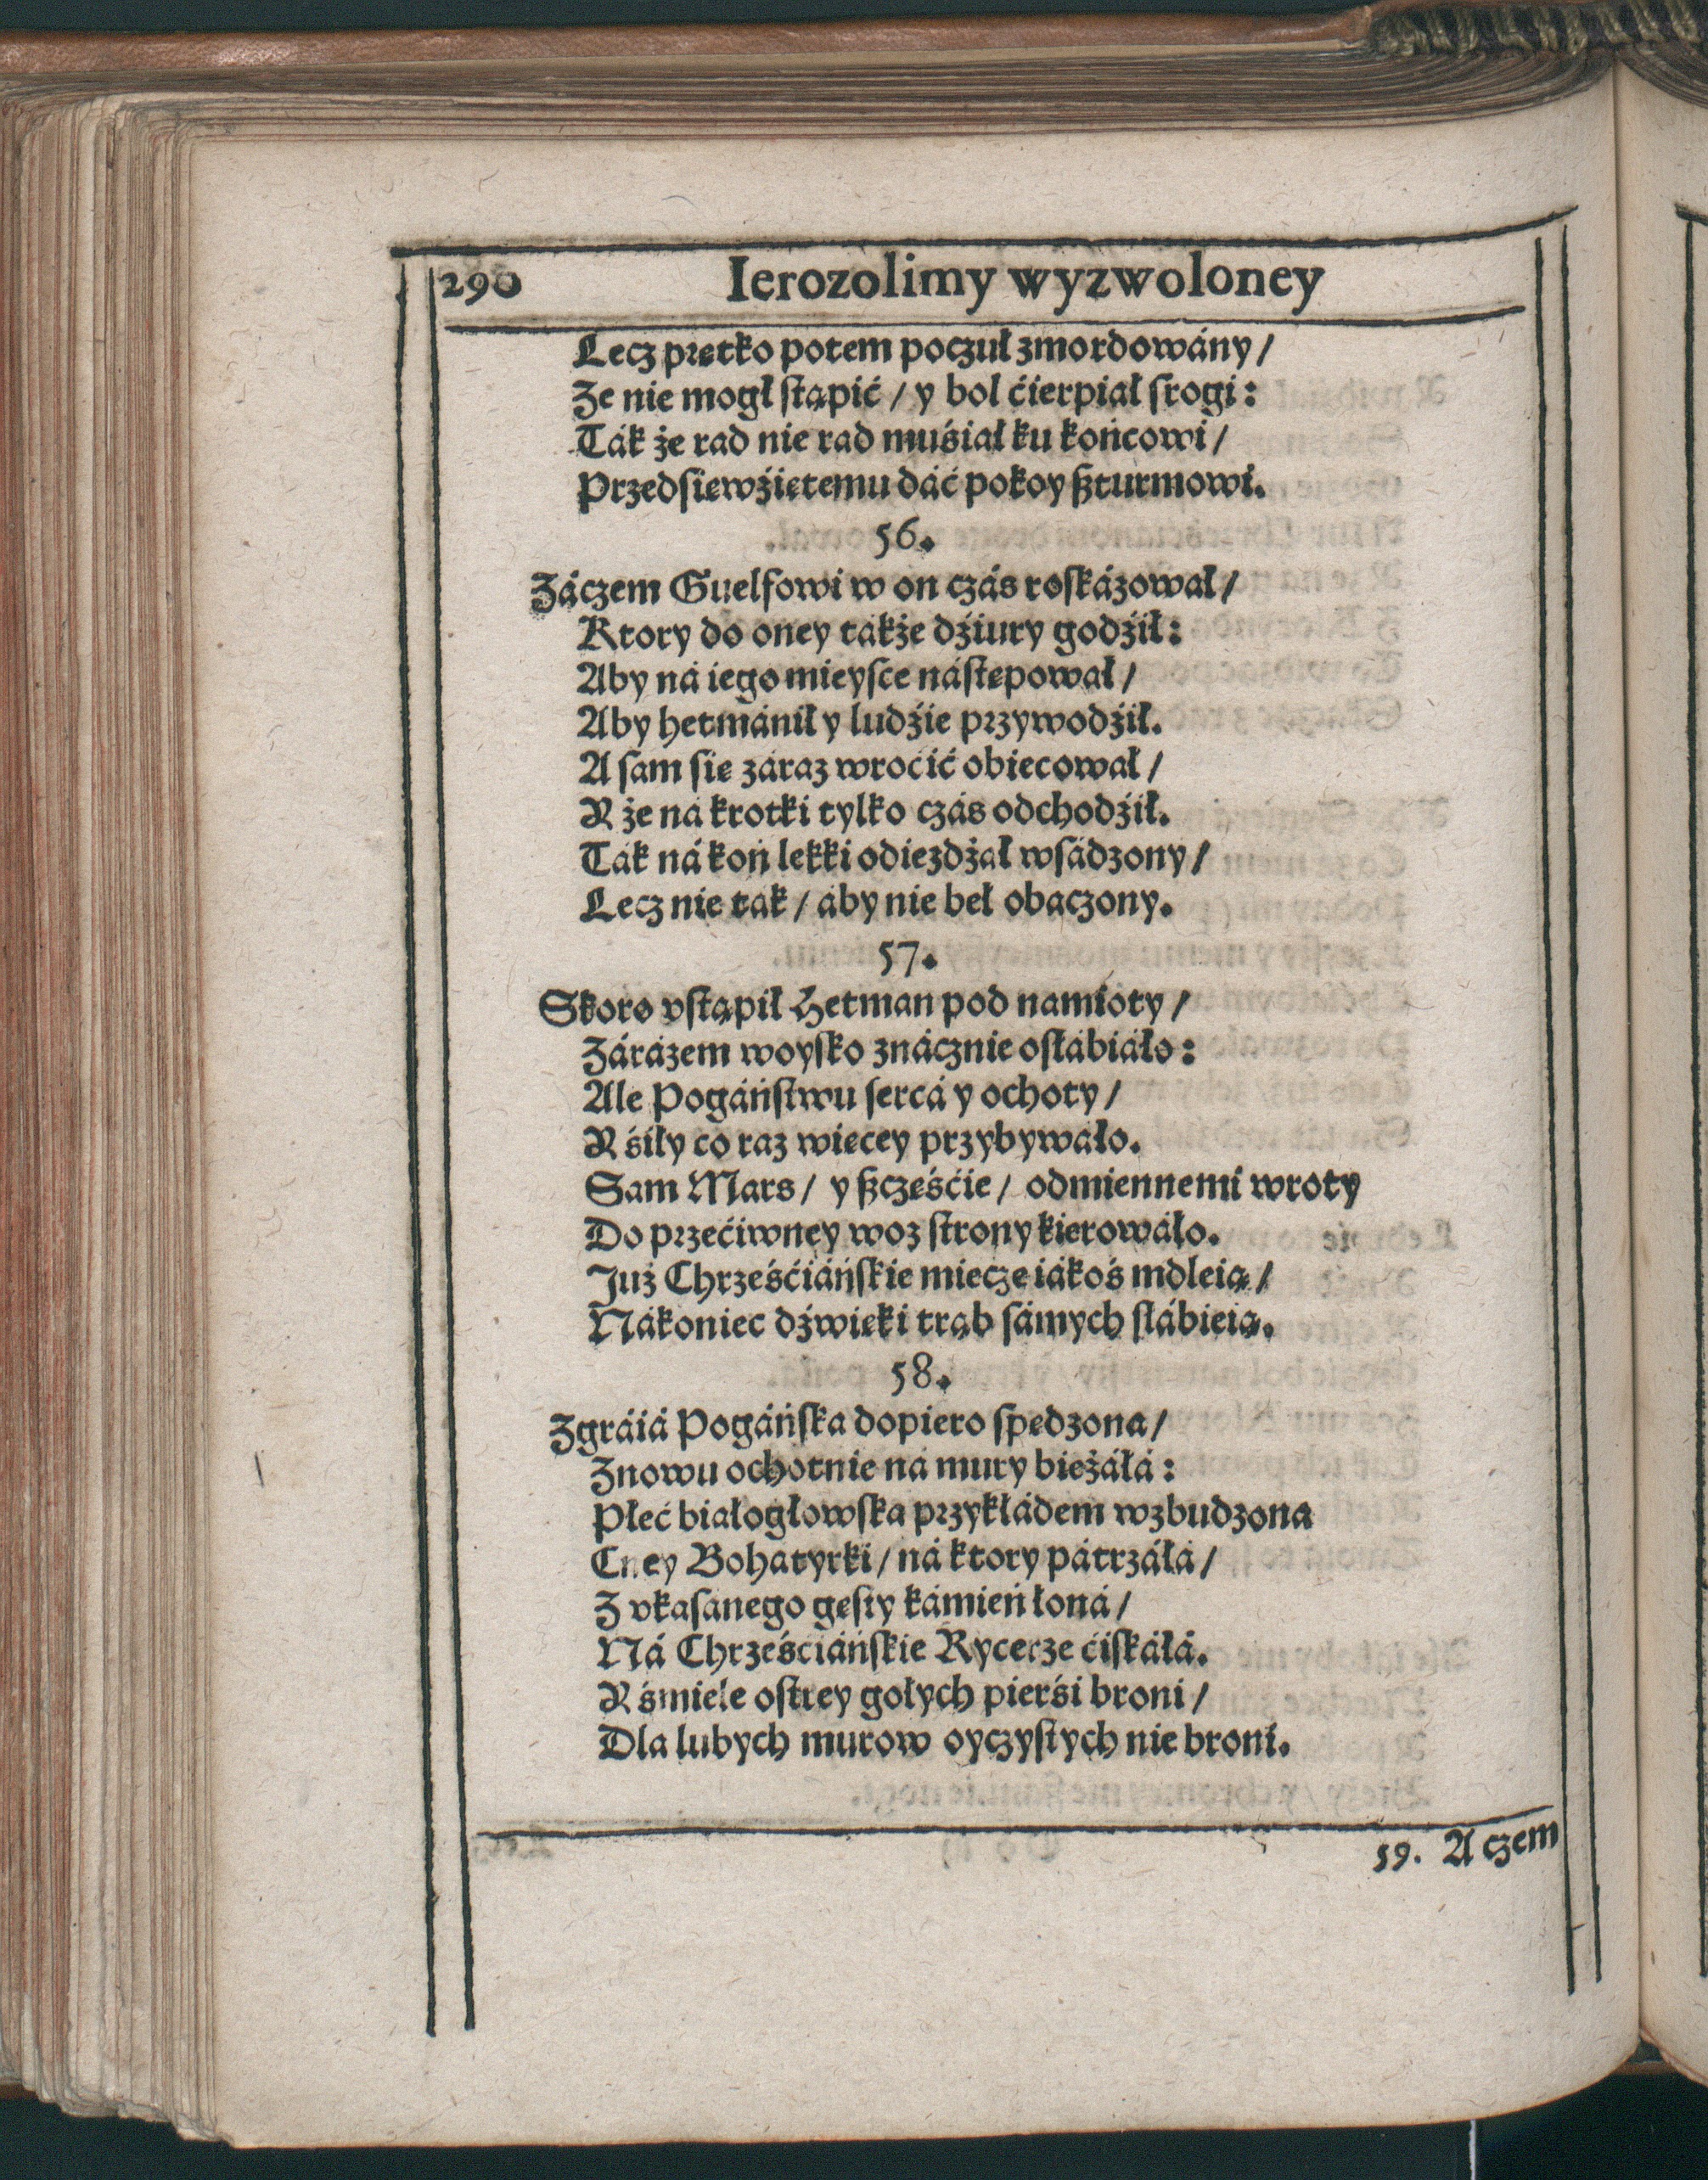 290 Ierozolimy wyzwoloney
Lecz prętko potem poczuł zmordowány /
Że nie mogł stąpić / y bol ćierpiał srogi :
Ták że rad nie rad muśiał ku końcowi /
Przedsięwźiętemu dáć pokoy ßturmowi.
56.
Záczem Guelfowi w on czás roskázował /
Ktory do oney tákże dźiury godźił :
Aby ná iego mieysce nástępował /
Aby hetmánił y ludźie przywodźił.
A sam się záraz wroćić obiecował /
Y że ná krotki tylko czás odchodźił.
Ták ná koń lekki odieżdżał wsádzony /
Lecz nie tak / áby nie beł obaczony.
57.
Skoro vstąpił Hetman pod namioty /
Zárázem woysko znácznie osłábiáło :
Ale Pogáństwu sercá y ochoty /
Y śiły co raz więcey przybywáło.
Sam Mars / y ßczęśćie / odmiennemi wroty
Do przećiwney woz strony kierowáło.
Już Chrześćiáńskie miecze iákoś mdleią /
Nákoniec dźwięki trąb sámych słábieią.
58.
Zgráiá Pogáńska dopiero spędzona /
Znowu ochotnie ná mury bieżáłá :
Płeć białogłowska przykłádem wzbudzona
Cney Bohatyrki / ná ktory pátrzáłá /
Z vkasánego gęsty kámień łoná /
Ná Chrześciáńskie Rycerze ćiskáłá.
Y śmiele ostrey gołych pierśi broni /
Dla lubych murow oyczystych nie broni.
59. A czem